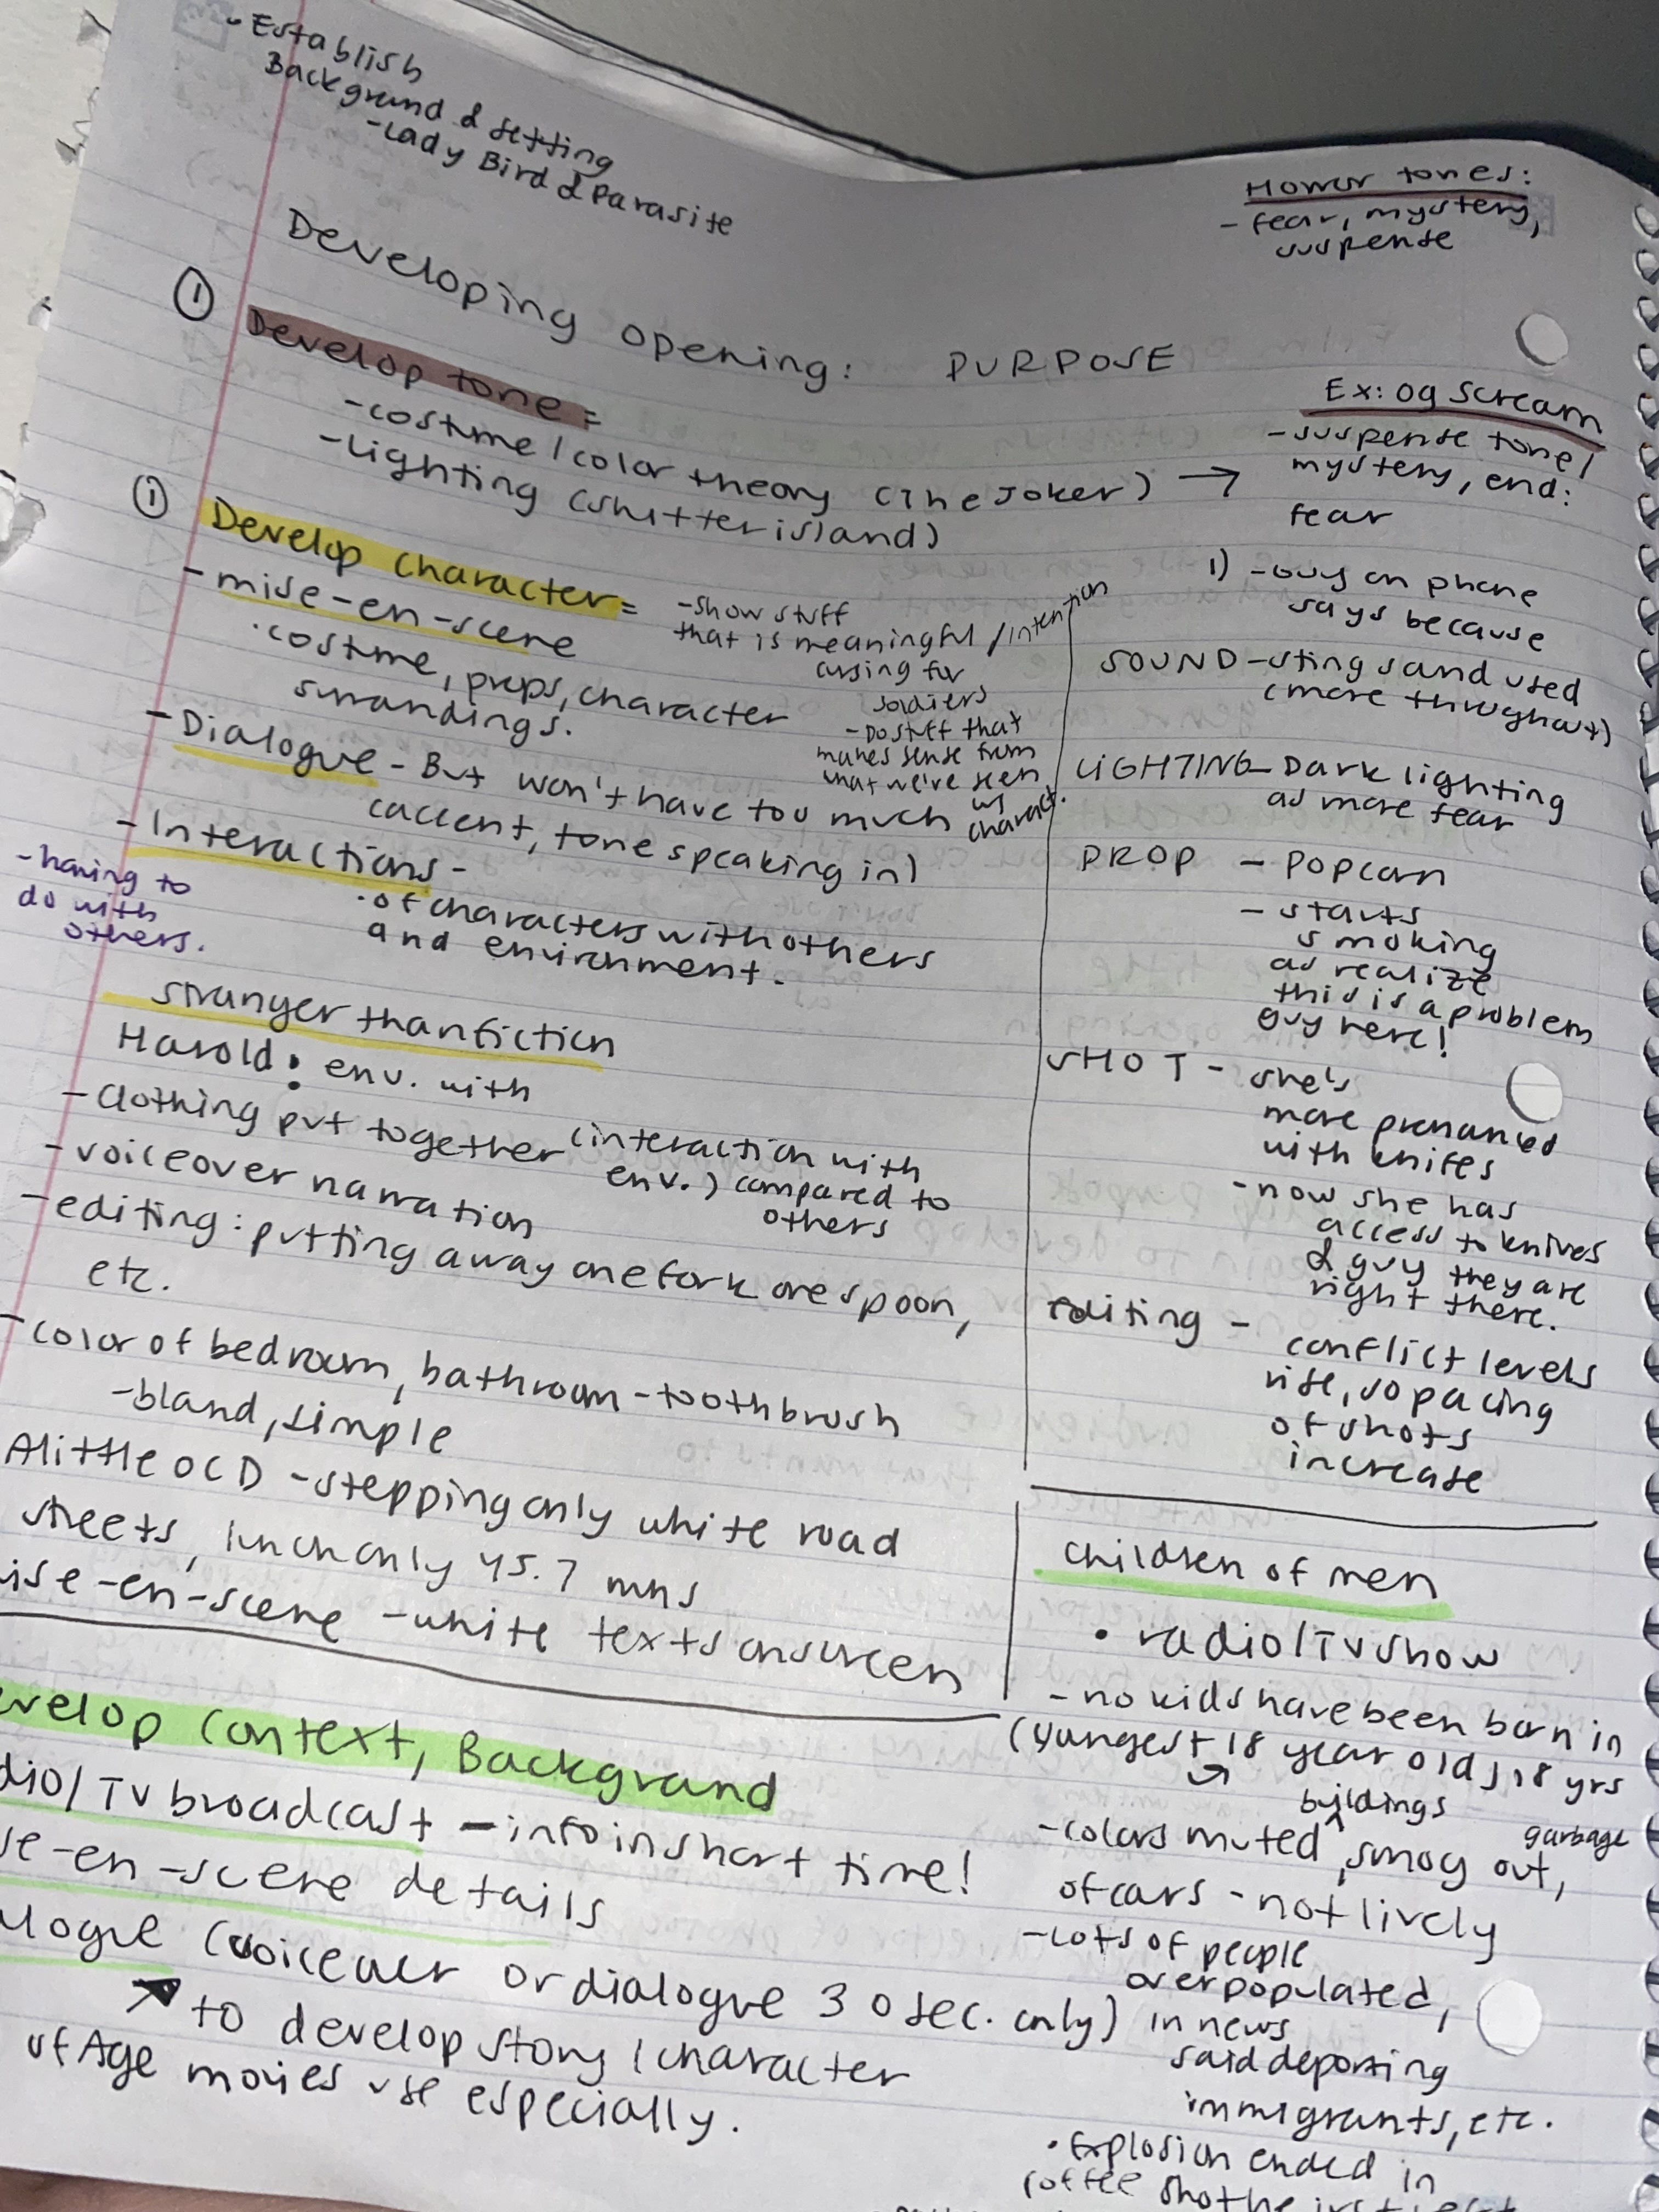 - Establish
Background & setting
- Lady Bird & Parasite
Horror tones:
- fear, mystery,
suspense
Developing opening: PURPOSE
① Develop tone =
- costume / color theory (The Joker) →
- Lighting (Shutter island)
① Develop Character =
- mise-en-scene
· costume, props, character
surroundings.
- show stuff
that is meaningful / intention
for
soldiers
- Do stuff that
makes sense from
what we've seen
w/
charact.
- Dialogue - But won't have too much
(accent, tone speaking in)
- Interactions -
· of characters with others
and environment.
- having to
do with
others.
Stranger than fiction
Harold: env. with
- Clothing put together (interaction with
env.) compared to
others
- voiceover narration
- editing: putting away one fork one spoon,
etc.
- color of bedroom, bathroom - toothbrush
- bland, simple
A little OCD - stepping only white road
streets, lunch only 45.7 mns
ise-en-scene - white texts onscreen
evelop Context, Background
dio/TV broadcast - info in short time!
se-en-scene details
alogue (voiceover or dialogue 30 sec. only)
to develop story / character
of Age movies use especially.
Ex: og Scream
- suspense tone /
mystery, end:
fear
1) - Guy on phone
says because
SOUND - sting sound used
(more throughout)
LIGHTING - Dark lighting
as more fear
PROP - Popcorn
- starts
smoking
as realize
this is a problem
guy here!
SHOT - she's
more pronounced
with knifes
- now she has
access to knives
& guy they are
right there.
Editing - conflict levels
rise, so pacing
of shots
increase
Children of men
• radio/TV show
- no kids have been born in
(youngest 18 year old) 18 yrs
buildings
garbage
- colors muted, smog out,
of cars - not lively
- Lots of people
overpopulated,
in news
said deporting
immigrants, etc.
· Explosion ended in
coffee